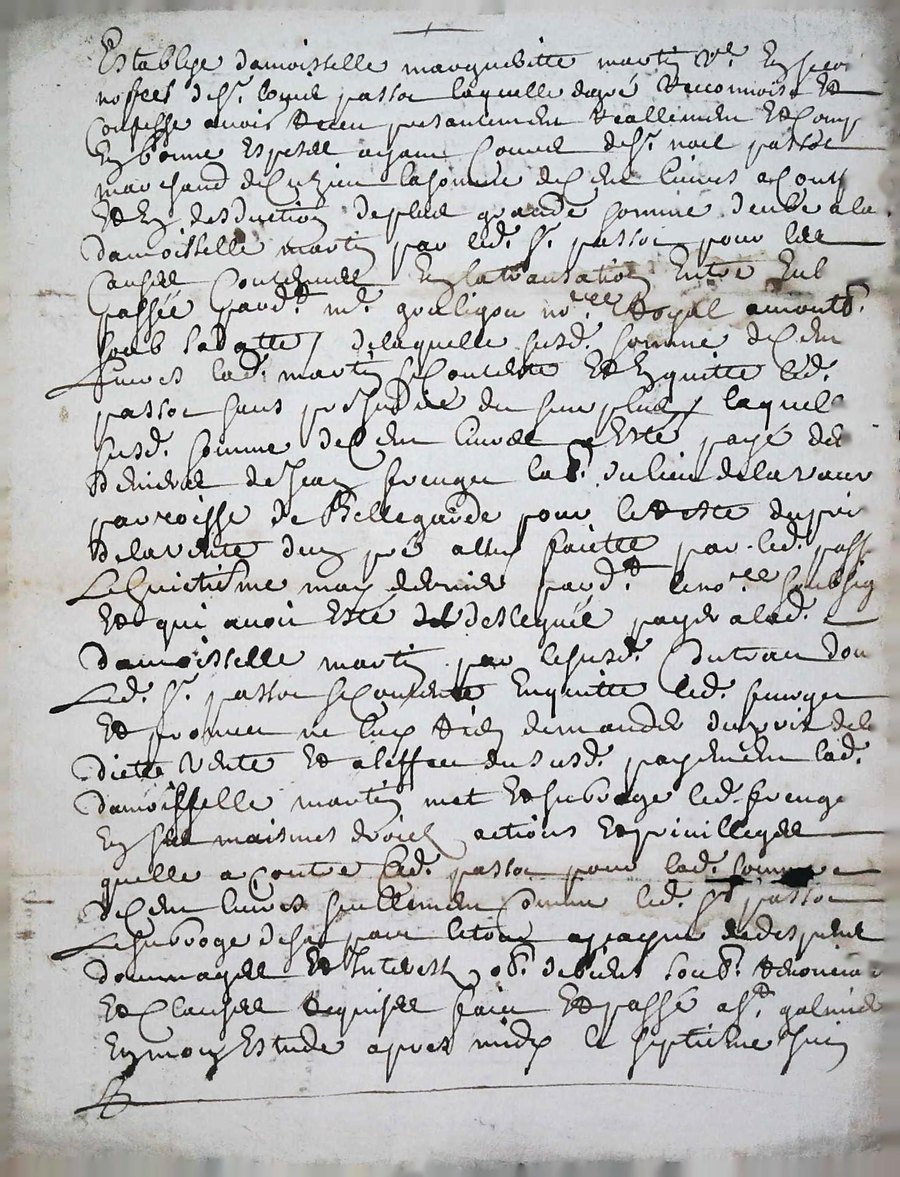 Establye damoisselle marguebitte martin vе. En
nosses de sr. passoc laquelle degré Recconnoist Et
Confesse avoir Receu presantement Reallement Et Comp
En bonne Espesse de sr. noel passoc
marchand de Cuzieu la somme de Cent livres a Conte
Et En desduction de plus grande somme deube a la
damoisselle martin par led. sr. passoc pour les
Causes Contenues En la transation Entre Eus
passée pard.t me. gouligou nore. Royal a mont
soub la datte / de laquelle susd. somme de Cent
livres lad. martin se Contente Et En quitte led.
passoc sans preiudice du surplus / laquelle
susd. somme de Cent livres a Esté payé des
deniers de Jean frenges lab.r du lieu de la vaur
parroisse de Bellegarde pour le Reste du pris
de la vente dun pré faitte par led. pass
Le huictisme may dernier pard.t le nore. soubsig
Et qui avoit Esté deslegué payer a lad.
damoisselle martin par le susd. Contrat dont
Led. sr. passoc se Contente En quitte led. frenges
Et promet ne luy Rien demander du pris de la
ditte vente Et a leffect du susd. payement lad.
damoisselle martin met Et subroge led. frenge
En ses maismes droicts actions Et privilleges
quelle a Contre led. passoc pour lad. somme
de Cent livres seullement Comme led. sr. passoc
Le subroge de sa part le tout a paine de despens
dommages Et Interest ob. de biens soub. Renoncia
Et Clauses Requises fait Et passé a st. galmier
En mon Estude apres midy le septiesme Juin